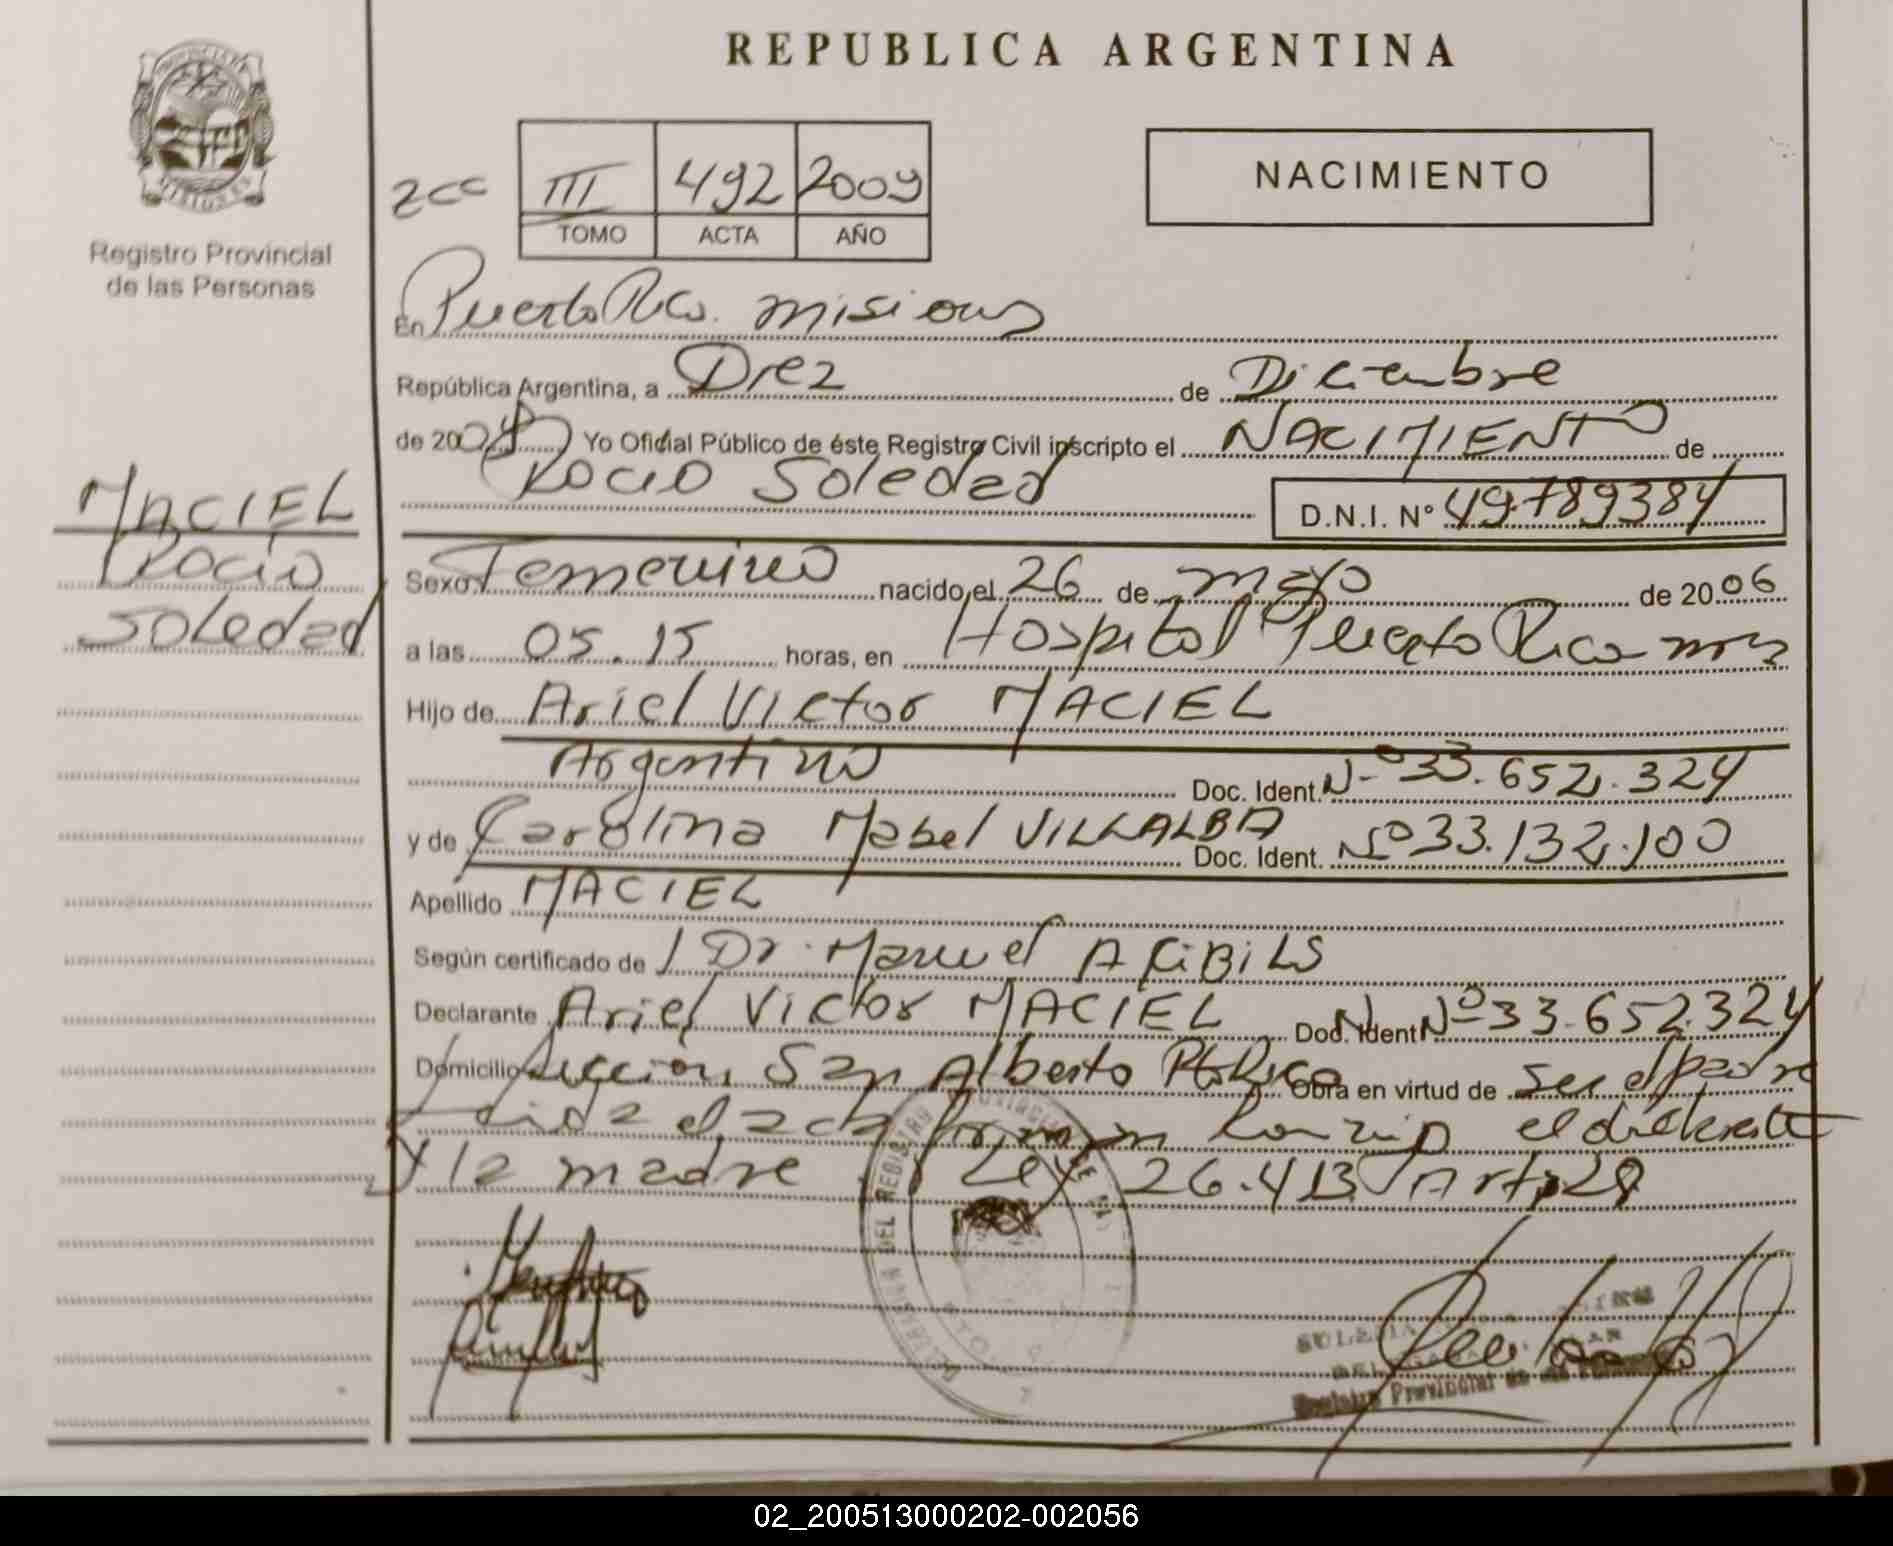 REPUBLICA ARGENTINA
Registro Provincial
de las Personas
2cc
III 492 2009
TOMO ACTA AÑO
NACIMIENTO
En Puerto Rico. misiones
República Argentina, a Diez de Diciembre
de 2009 Yo Oficial Público de éste Registro Civil inscripto el NACIMIENTO de
Rocio Soledad D.N.I. N° 49789384
MACIEL
Rocio
Soledad
Sexo Femenino nacido el 26 de mayo de 2006
a las 05.15 horas, en Hospital Puerto Rico
Hijo de Ariel Victor MACIEL
Argentino Doc. Ident. Nº 33.652.324
y de Carolina Mabel VILLALBA Doc. Ident. Nº 33.132.100
Apellido MACIEL
Según certificado de Dr. Manuel
Declarante Ariel Victor MACIEL Doc. Ident Nº 33.652.324
Domicilio Sección San Alberto Pto Rico Obra en virtud de ser el padre
Leida el acta firman conmigo el declarante
y la madre. Ley 26.413 Art. 28
Registro Provincial de las Personas
02_200513000202-002056